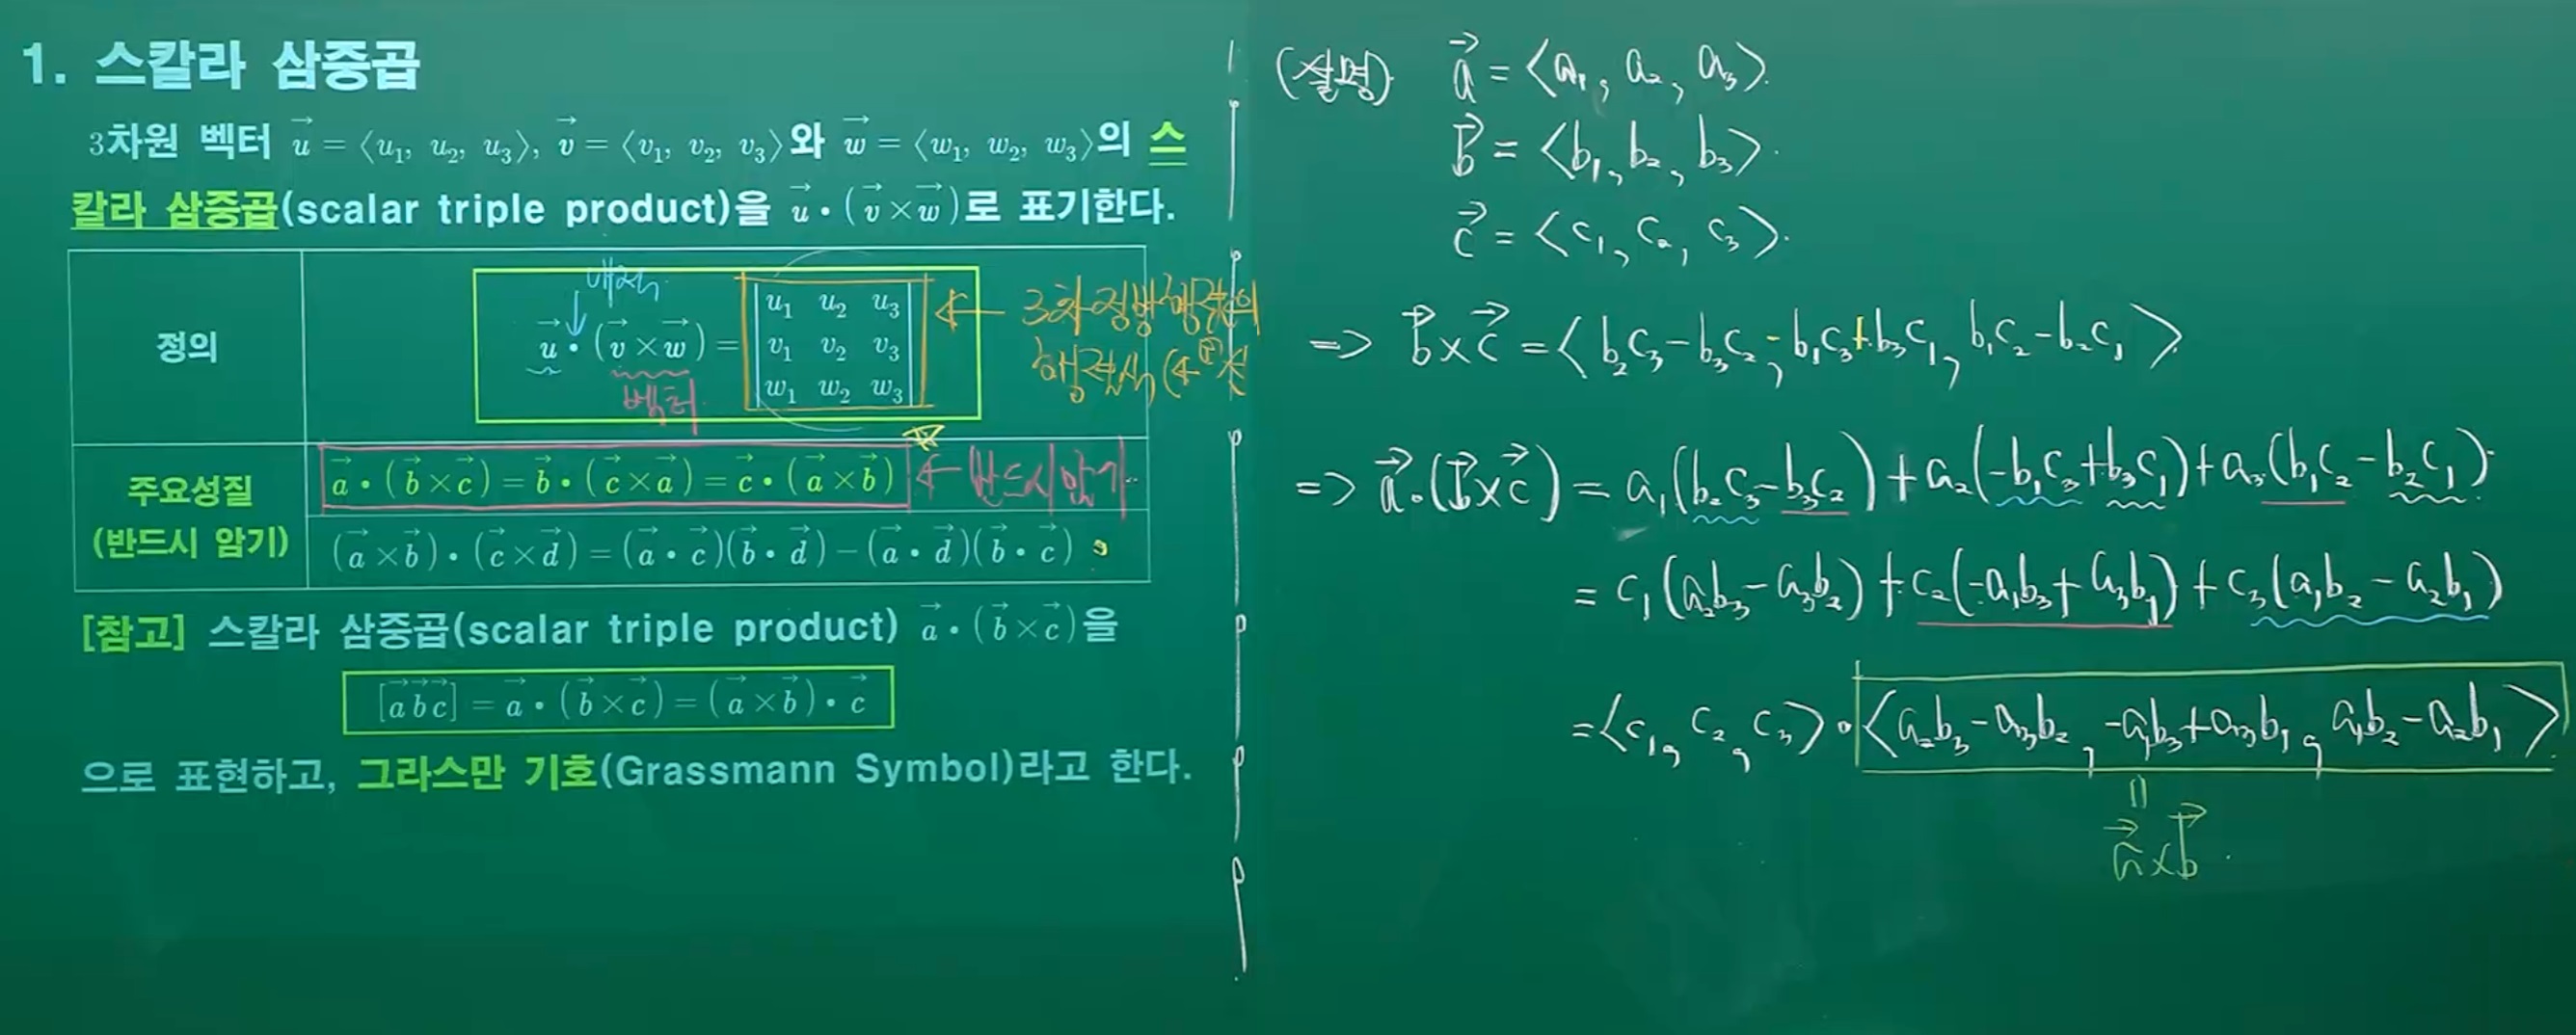 1. 스칼라 삼중곱
3차원 벡터 u⃗ = ⟨u₁, u₂, u₃⟩, v⃗ = ⟨v₁, v₂, v₃⟩와 w⃗ = ⟨w₁, w₂, w₃⟩의 스
칼라 삼중곱(scalar triple product)을 u⃗ • (v⃗ × w⃗)로 표기한다.
내적
정의
u⃗ • (v⃗ × w⃗) =
u₁ u₂ u₃
v₁ v₂ v₃
w₁ w₂ w₃
벡터
← 3차정방행렬의
행렬식
주요성질
(반드시 암기)
a⃗ • (b⃗ × c⃗) = b⃗ • (c⃗ × a⃗) = c⃗ • (a⃗ × b⃗)
← 반드시 암기
(a⃗ × b⃗) • (c⃗ × d⃗) = (a⃗ • c⃗)(b⃗ • d⃗) − (a⃗ • d⃗)(b⃗ • c⃗)
[참고] 스칼라 삼중곱(scalar triple product) a⃗ • (b⃗ × c⃗)을
[a⃗ b⃗ c⃗] = a⃗ • (b⃗ × c⃗) = (a⃗ × b⃗) • c⃗
으로 표현하고, 그라스만 기호(Grassmann Symbol)라고 한다.
(설명) a⃗ = ⟨a₁, a₂, a₃⟩.
b⃗ = ⟨b₁, b₂, b₃⟩.
c⃗ = ⟨c₁, c₂, c₃⟩.
⇒ b⃗ × c⃗ = ⟨b₂c₃ − b₃c₂, −b₁c₃ + b₃c₁, b₁c₂ − b₂c₁⟩
⇒ a⃗ • (b⃗ × c⃗) = a₁(b₂c₃ − b₃c₂) + a₂(−b₁c₃ + b₃c₁) + a₃(b₁c₂ − b₂c₁)
= c₁(a₂b₃ − a₃b₂) + c₂(−a₁b₃ + a₃b₁) + c₃(a₁b₂ − a₂b₁)
= ⟨c₁, c₂, c₃⟩ • ⟨a₂b₃ − a₃b₂, −a₁b₃ + a₃b₁, a₁b₂ − a₂b₁⟩
=
a⃗ × b⃗.